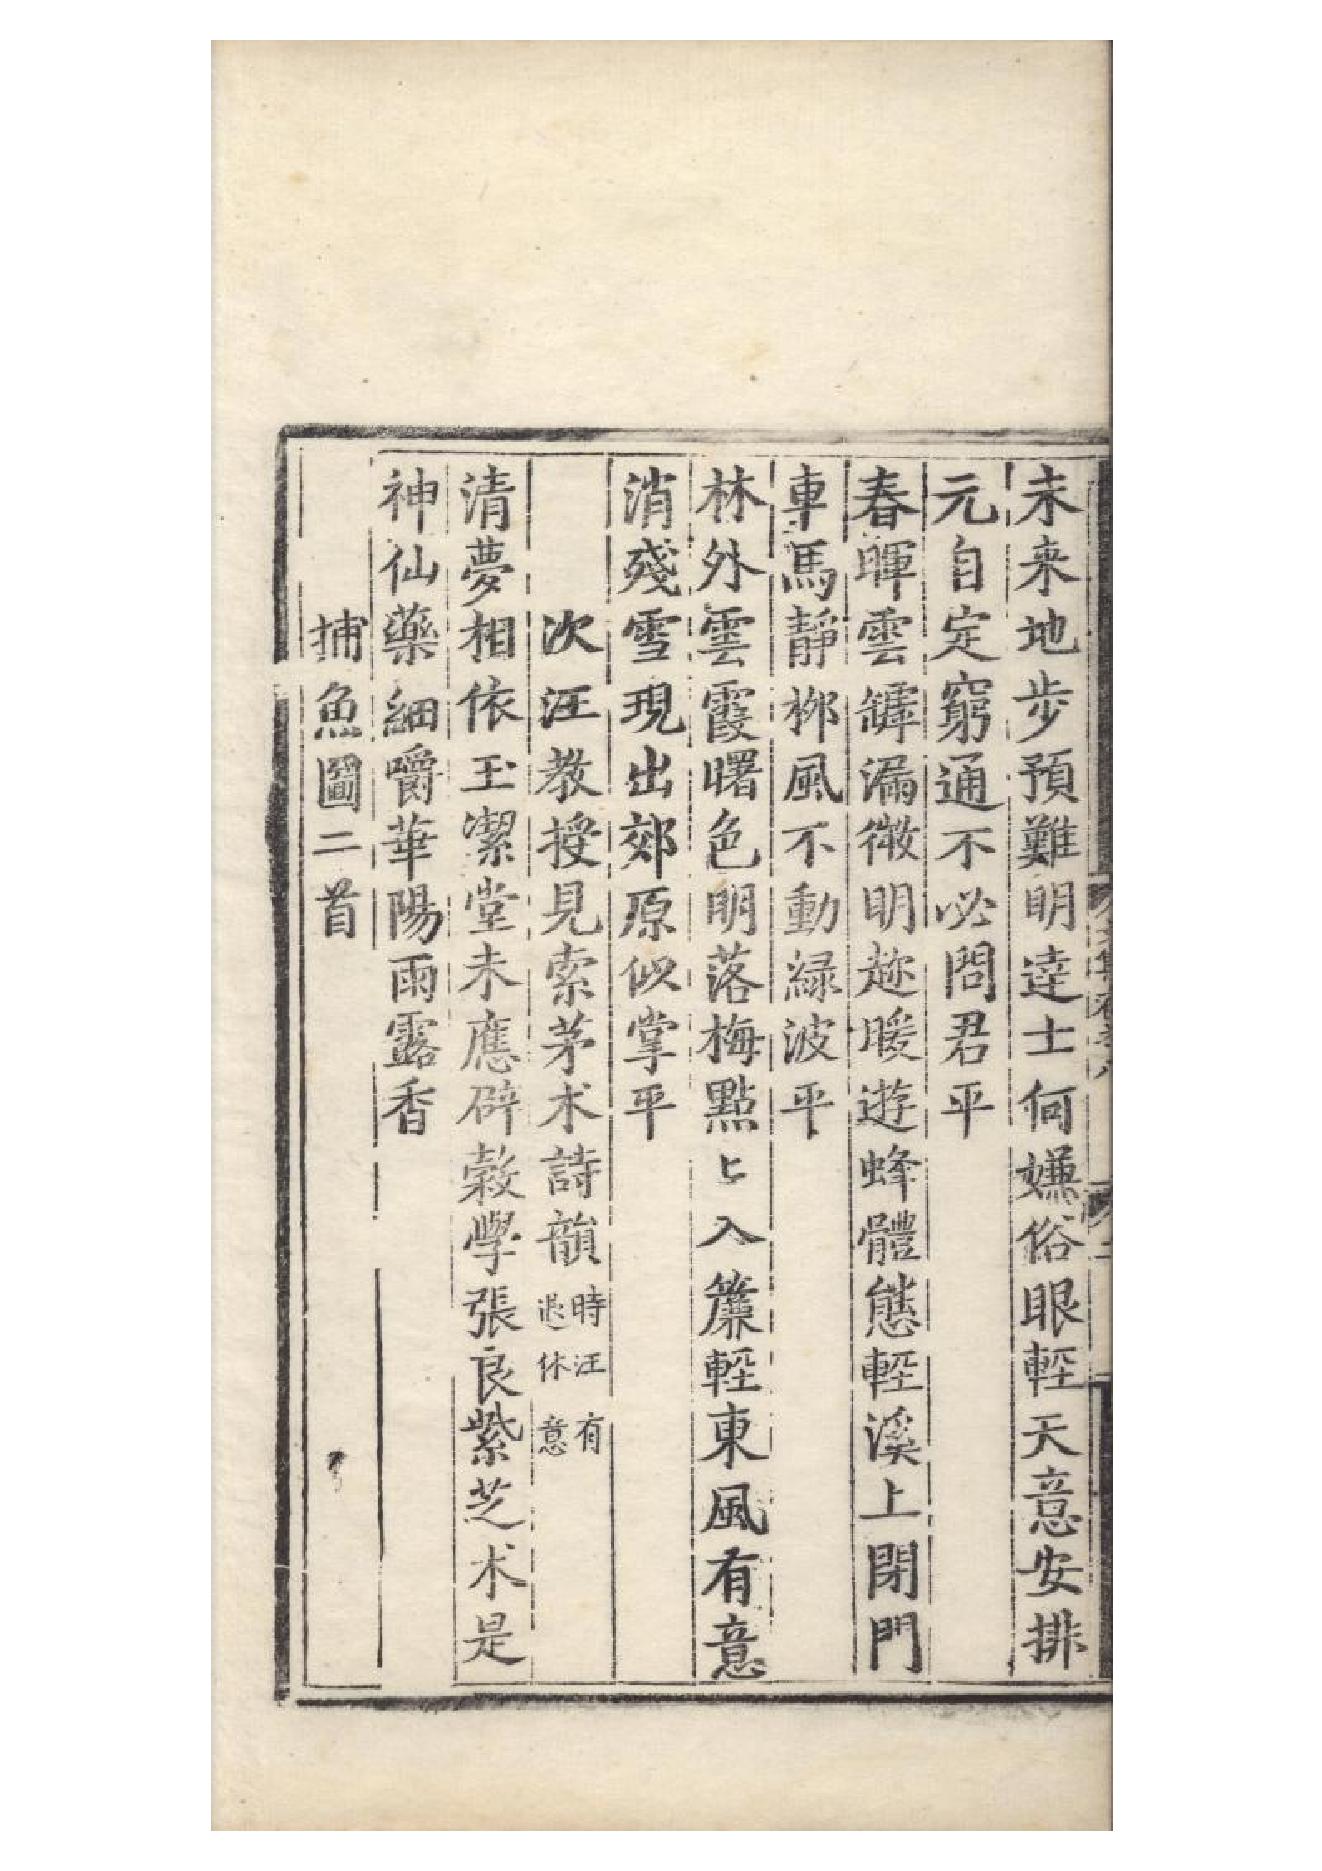 未来地步預難明逹士何嫌俗眼輕天意安排
元自定窮通不必問君平
春暉雲罅漏微明趂暖遊蜂體態輕溪上閉門
車馬靜栁風不動綠波平
林外雲霞曙色明落梅點〻入簾輕東風有意
消殘雪現出郊原似掌平
次汪教授見索茅术詩韻時汪有退休意
清夢相依玉潔堂未應辟榖學張良紫芝术是
神仙藥細嚼華陽雨露香
捕魚圖二首